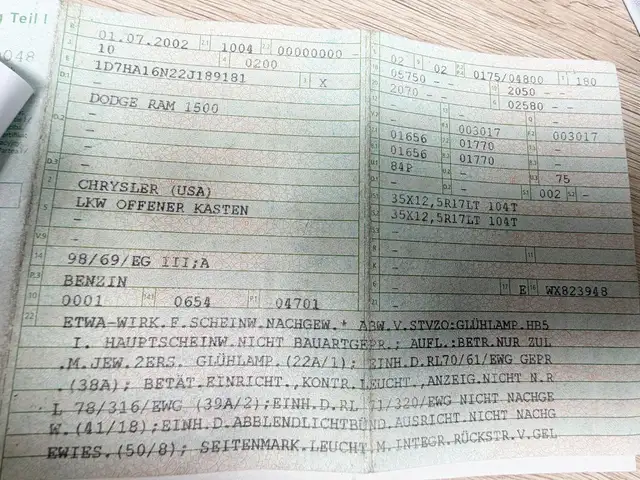 g Teil I
048
01.07.2002 2.1 1004 2.2 00000000 -
10 0200
1D7HA16N22J189181 3 X
-
DODGE RAM 1500
-
-
-
CHRYSLER (USA)
LKW OFFENER KASTEN
-
-
98/69/EG III;A
BENZIN
0001 14.1 0654 P.1 04701
02 02 0175/04800 180
05750 - - 2050 - -
2070 - - 02580 - -
-
01656 003017 003017
01656 01770
84P 01770
- - 75
- 002
35X12,5R17LT 104T
35X12,5R17LT 104T
-
-
-
- E WX823948
-
22 ETWA-WIRK.F.SCHEINW.NACHGEW.* ABW.V.STVZO:GLÜHLAMP.HB5
I. HAUPTSCHEINW.NICHT BAUARTGEPR.; AUFL.:BETR.NUR ZUL
.M.JEW.2ERS. GLÜHLAMP.(22A/1);EINH.D.RL70/61/EWG GEPR
.(38A); BETÄT.EINRICHT.,KONTR.LEUCHT.,ANZEIG.NICHT N.R
L 78/316/EWG (39A/2);EINH.D.RL 71/320/EWG NICHT NACHGE
W.(41/18);EINH.D.ABBLENDLICHTBÜND.AUSRICHT.NICHT NACHG
EWIES.(50/8); SEITENMARK.LEUCHT.M.INTEGR.RÜCKSTR.V.GEL